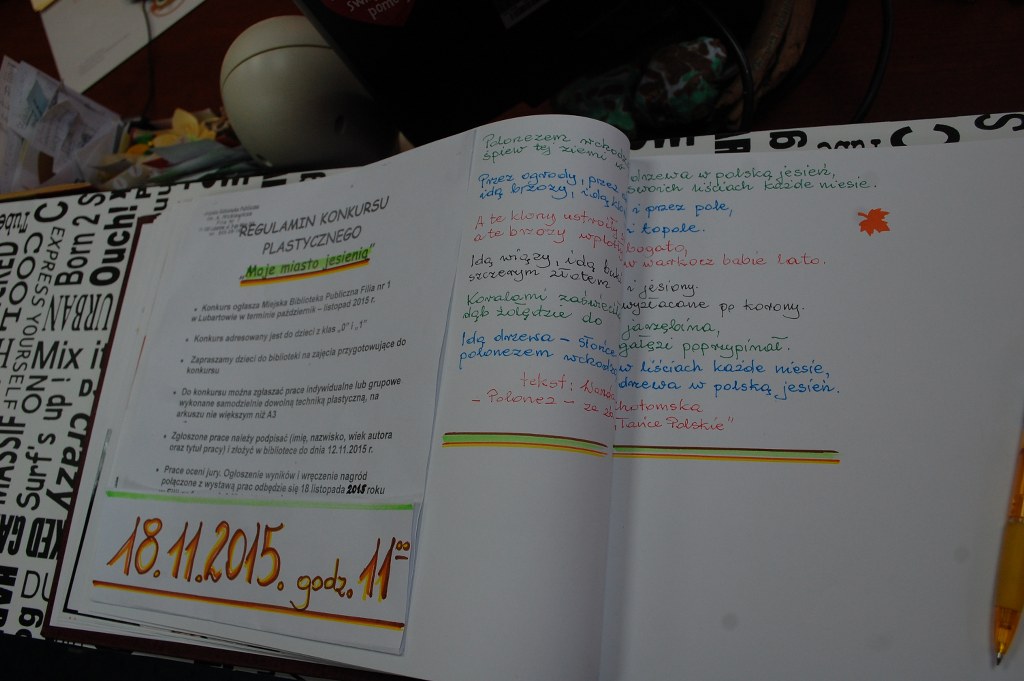 REGULAMIN KONKURSU
PLASTYCZNEGO
„Moje miasto jesienią”
• Konkurs ogłasza Miejska Biblioteka Publiczna Filia nr 1
w Lubartowie w terminie październik – listopad 2015 r.
• Konkurs adresowany jest do dzieci z klas „0” i „1”
• Zapraszamy dzieci do biblioteki na zajęcia przygotowujące do
konkursu
• Do konkursu można zgłaszać prace indywidualne lub grupowe
wykonane samodzielnie dowolną techniką plastyczną, na
arkuszu nie większym niż A3
• Zgłoszone prace należy podpisać (imię, nazwisko, wiek autora
oraz tytuł pracy) i złożyć w bibliotece do dnia 12.11.2015 r.
• Prace oceni jury. Ogłoszenie wyników i wręczenie nagród
połączone z wystawą prac odbędzie się 18 listopada 2015 roku
18.11.2015. godz. 11⁰⁰
Polonezem wchodzą drzewa w polską jesień,
śpiew tej ziemi w swoich liściach każde niesie.
Przez ogrody, przez i przez pole,
idą brzozy, idą i topole.
A te klony ustroiły bogato,
a te brzozy wplotły w warkocz babie lato.
Idą wiązy, idą buki i jesiony.
szczerym złotem wyzłacane po korony.
Koralami zabłysnęła jarzębina,
dąb żołędzie do gałęzi poprzypinał.
Idą drzewa – słońce w liściach każde niesie,
polonezem wchodzą drzewa w polską jesień.
tekst: Wanda Chotomska
– Polonez – ze „Tańce Polskie”
Tube
COOL
EXPRESS YOURSELF
Born 2 S
Ouch!
URBAN
Mix it
NO
MASSIF
Surf's up
crazy